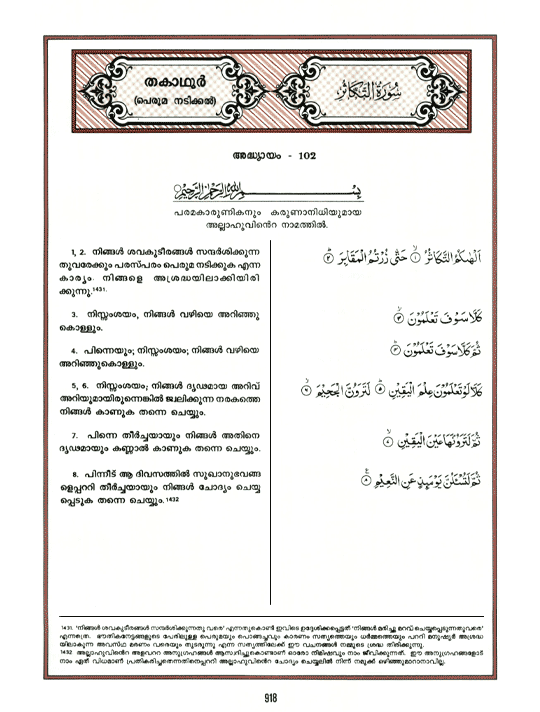 തകാഥുർ
(പെരുമ നടിക്കൽ)
سُورَةُ التَّكَاثُرِ
അദ്ധ്യായം - 102
بِسْمِ اللَّهِ الرَّحْمَٰنِ الرَّحِيمِ
പരമകാരുണികനും കരുണാനിധിയുമായ
അല്ലാഹുവിൻെറ നാമത്തിൽ.
1, 2. നിങ്ങൾ ശവകുടീരങ്ങൾ സന്ദർശിക്കുന്ന
തുവരേക്കും പരസ്പരം പെരുമ നടിക്കുക എന്ന
കാര്യം നിങ്ങളെ അശ്രദ്ധയിലാക്കിയിരി
ക്കുന്നു.1431.
3. നിസ്സംശയം, നിങ്ങൾ വഴിയെ അറിഞ്ഞു
കൊള്ളും.
4. പിന്നെയും; നിസ്സംശയം; നിങ്ങൾ വഴിയെ
അറിഞ്ഞുകൊള്ളും.
5, 6. നിസ്സംശയം; നിങ്ങൾ ദൃഢമായ അറിവ്
അറിയുമായിരുന്നെങ്കിൽ ജ്വലിക്കുന്ന നരകത്തെ
നിങ്ങൾ കാണുക തന്നെ ചെയ്യും.
7. പിന്നെ തീർച്ചയായും നിങ്ങൾ അതിനെ
ദൃഢമായും കണ്ണാൽ കാണുക തന്നെ ചെയ്യും.
8. പിന്നീട് ആ ദിവസത്തിൽ സുഖാനുഭവങ്ങ
ളെപ്പററി തീർച്ചയായും നിങ്ങൾ ചോദ്യം ചെയ്യ
പ്പെടുക തന്നെ ചെയ്യും.1432
أَلْهَىٰكُمُ التَّكَاثُرُ ۝١ حَتَّىٰ زُرْتُمُ الْمَقَابِرَ ۝٢
كَلَّا سَوْفَ تَعْلَمُونَ ۝٣
ثُمَّ كَلَّا سَوْفَ تَعْلَمُونَ ۝٤
كَلَّا لَوْ تَعْلَمُونَ عِلْمَ الْيَقِينِ ۝٥ لَتَرَوُنَّ الْجَحِيمَ ۝٦
ثُمَّ لَتَرَوُنَّهَا عَيْنَ الْيَقِينِ ۝٧
ثُمَّ لَتُسْـَٔلُنَّ يَوْمَئِذٍ عَنِ النَّعِيمِ ۝٨
1431. 'നിങ്ങൾ ശവകുടീരങ്ങൾ സന്ദർശിക്കുന്നതു വരെ' എന്നതുകൊണ്ട് ഇവിടെ ഉദ്ദേശിക്കപ്പെട്ടത് 'നിങ്ങൾ മരിച്ചു മറവ് ചെയ്യപ്പെടുന്നതുവരേ'
എന്നത്രെ. ഭൗതികനേട്ടങ്ങളുടെ പേരിലുള്ള പെരുമയും പൊങ്ങച്ചവും കാരണം സത്യത്തെയും ധർമ്മത്തെയും പററി മനുഷ്യർ അശ്രദ്ധ
യിലാകുന്ന അവസ്ഥ മരണം വരെയും തുടരുന്നു എന്ന സത്യത്തിലേക്ക് ഈ വചനങ്ങൾ നമ്മുടെ ശ്രദ്ധ തിരിക്കുന്നു.
1432 അല്ലാഹുവിൻെറ അളവററ അനുഗ്രഹങ്ങൾ ആസ്വദിച്ചുകൊണ്ടാണ് ഓരോ നിമിഷവും നാം ജീവിക്കുന്നത്. ഈ അനുഗ്രഹങ്ങളോട്
നാം ഏത് വിധമാണ് പ്രതികരിച്ചതെന്നതിനെപ്പററി അല്ലാഹുവിൻെറ ചോദ്യം ചെയ്യലിൽ നിന്ന് നമുക്ക് ഒഴിഞ്ഞുമാറാനാവില്ല.
918